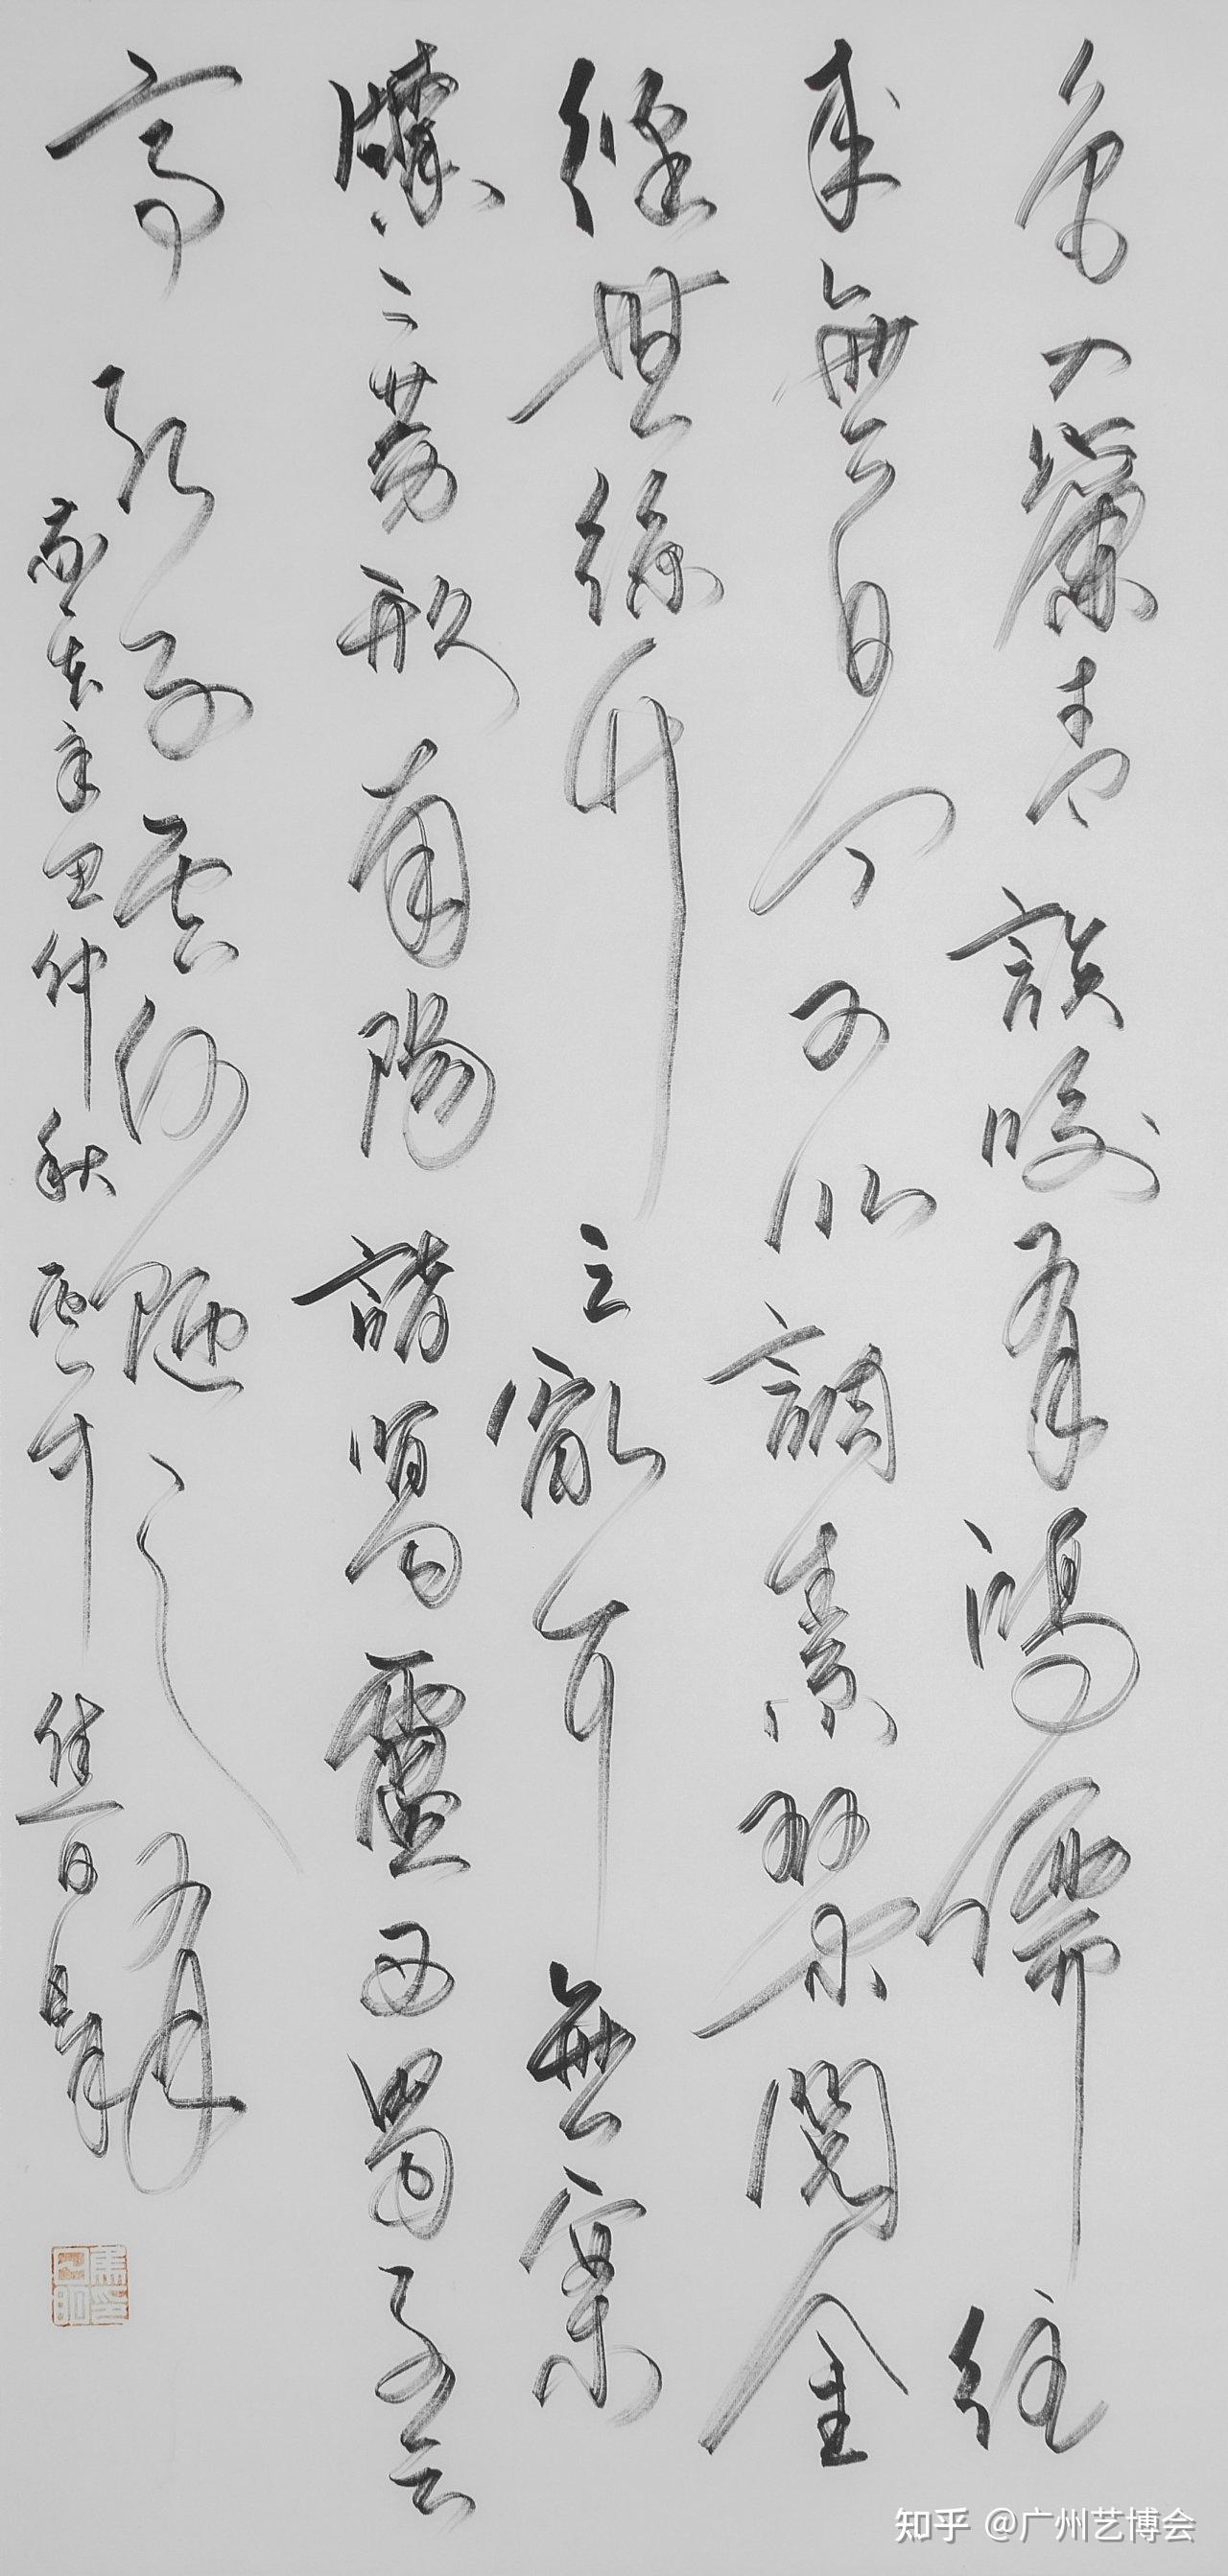 色入簾青談笑有鴻儒往
來無白丁可以調素琴閱金
經無絲竹之亂耳無案
牘之勞形南陽諸葛廬西蜀子雲
亭孔子云何陋之有
辛丑仲秋
知乎 @广州艺博会